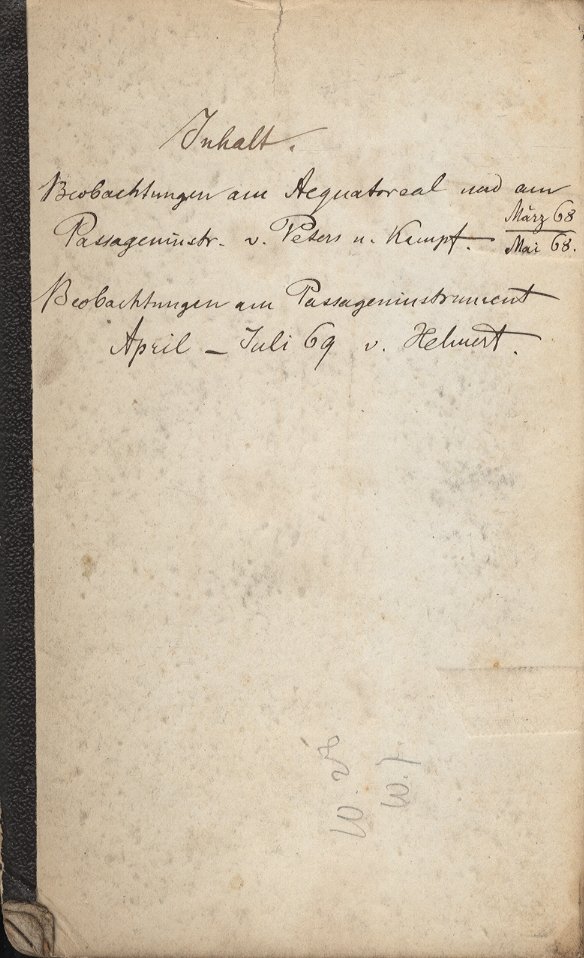 Inhalt.
Beobachtungen am Aequatoreal und am
Passageninstr. v. Peters u. Kampf. März 68
Mai 68.
Beobachtungen am Passageninstrument
April – Juli 69 v. Helmert.